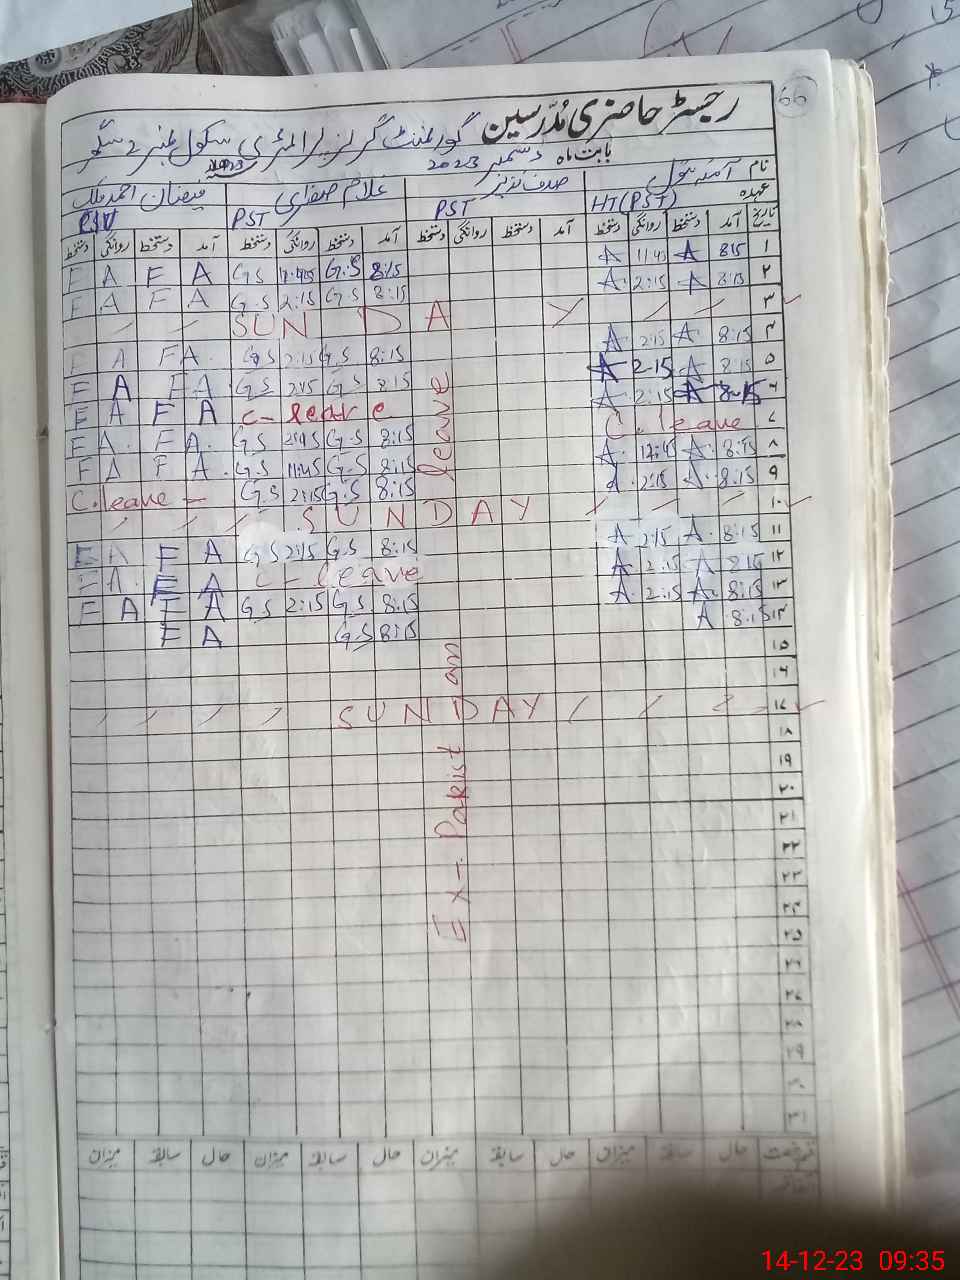 66
رجسٹر حاضری مُدرّسین
گورنمنٹ گرلز پرائمری سکول نمبر 2
بابت ماہ دسمبر 2023
نام آمنہ بتول صدف نذیر غلام صغریٰ فیضان احمد ملک
عہدہ HT(PST) PST PST PST
تاریخ آمد دستخط روانگی دستخط آمد دستخط روانگی دستخط آمد دستخط روانگی دستخط آمد دستخط روانگی دستخط
۱ 8:15 A 11:45 A 8:15 G.S 12:45 G.S A F A F
۲ 8:15 A 2:15 A 8:15 G.S 2:15 G.S A F A F
۳ SUN DAY
۴ 8:15 A 2:15 A 8:15 G.S 2:15 G.S A F A F
۵ 8:15 A 2:15 A 8:15 G.S 2:15 G.S A F A F
۶ 8:15 A 2:15 A C-leave A F A F
۷ C.leave 8:15 G.S G.S A F A F
۸ 8:15 A 12:45 A 8:15 G.S 11:45 G.S A F A F
۹ 8:15 A 2:15 A 8:15 G.S 2:15 G.S C.leave
۱۰ SUNDAY
۱۱ 8:15 A 2:15 A 8:15 G.S 2:15 G.S A F A F
۱۲ 8:15 A 2:15 A C-leave A F A F
۱۳ 8:15 A 2:15 A 8:15 G.S 2:15 G.S A F A F
۱۴ 8:15 A 8:15 G.S A F
۱۵
۱۶
۱۷ SUNDAY
۱۸
۱۹
۲۰
۲۱
۲۲
۲۳
۲۴
۲۵
۲۶
۲۷
۲۸
۲۹
۳۰
۳۱
Ex-Pakistan leave
حال سابقہ میزان حال سابقہ میزان حال سابقہ میزان حال سابقہ میزان
14-12-23 09:35